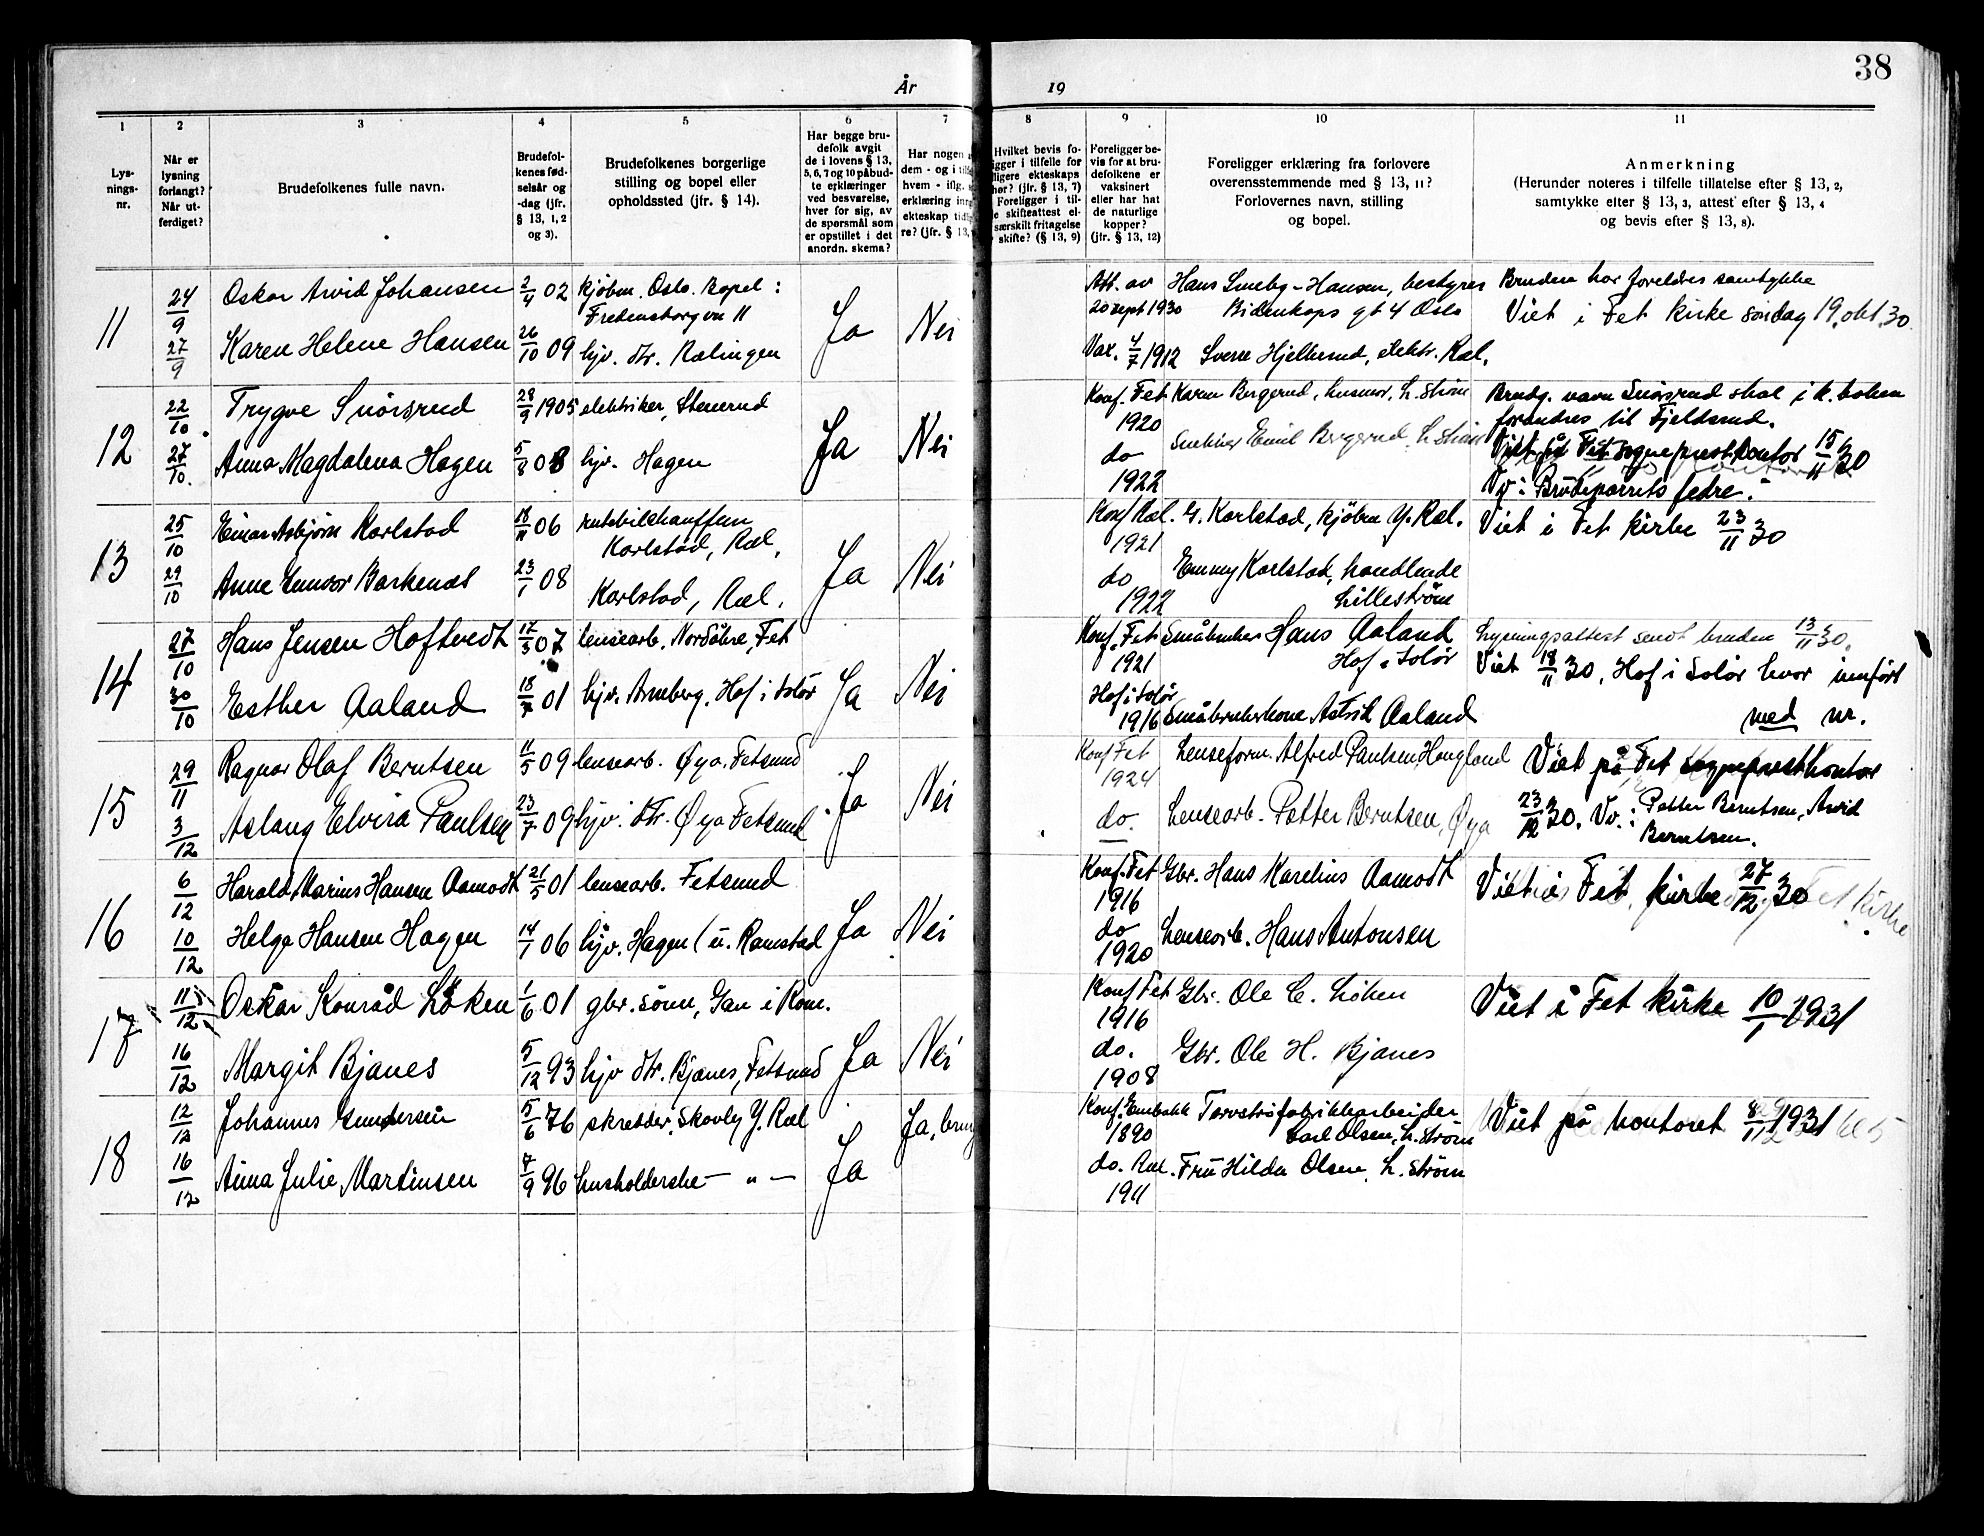 38
År 19
1 2 3 4 5 6 7 8 9 10 11
Lys-
nings-
nr.
Når er
lysning
forlangt?
Når ut-
ferdiget?
Brudefolkenes fulle navn.
Brudefol-
kenes fød-
selsår og
-dag (jfr.
§ 13, 1, 2
og 3).
Brudefolkenes borgerlige
stilling og bopel eller
opholdssted (jfr. § 14).
Har begge bru-
defolk avgit
de i lovens § 13,
5, 6, 7 og 10 påbud-
te erklæringer
ved besvarelse,
hver for sig, av
de spørsmål som
er opstillet i det
anordn. skema?
Har nogen
dem - og i
hvem - iflg.
erklæring
ekteskap
re? (jfr. § 13,
Hvilket bevis fo-
igger i tilfelle for
ligere ekteskaps
hør? (jfr. § 13, 7)
Foreligger i til-
e skifteattest el-
særskilt fritagelse
skifte? (§ 13, 9)
Foreligger be-
vis for at bru-
defolkene er
vaksinert
eller har hat
de naturlige
kopper?
(jfr. § 13, 12)
Foreligger erklæring fra forlovere
overensstemmende med § 13, 11?
Forlovernes navn, stilling
og bopel.
Anmerkning
(Herunder noteres i tilfelle tillatelse efter § 13, 2,
samtykke efter § 13, 3, attest efter § 13, 4
og bevis efter § 13, 8).
11
24/9
27/9
Oskar Arvid Johansen 2/4 02 kjøbm. Oslo. Bopel:
Fredensborgvn 11
Karen Helene Hansen 26/10 09 hjv. dtr. Rælingen
Ja Nei
Att. av
20 sept 1930
Vax. 4/7 1912
Hans Smeby-Hansen, bestyrer
Bidenkaps gt 4 Oslo
Sverre Hjellerud, elektr. Ræl.
Bruden har foreldres samtykke
Viet i Fet kirke søndag 19. okt. 30
12
22/10
27/10
Trygve Snörsrud 28/9 1905 elektriker, Stenerud
Anna Magdalena Hagen 5/8 03 hjv. Hagen
Ja Nei
Konf. Fet
1920
do
1922
Karen Bergerud, husmor, L.ström
Snekker Emil Bergerud, L.ström
Brudg. navn Snörsrud skal i k.boken
forandres til Fjeldsrud.
Viet på Fet sogneprestkontor 15/11 30
Vv: Brudeparrets fedre.
13
25/10
29/10
Einar Asbjørn Karlstad 18/11 06 rutebilchauffeur
Karlstad, Ræl,
Anne Gunvor Barkenæs 23/1 08 Karlstad, Ræl.
Ja Nei
Konf Ræl.
1921
do
1922
G. Karlstad, kjøbm Y. Ræl.
Emmy Karlstad, handlende
Lilleström
Viet i Fet kirke 23/11 30
14
27/10
30/10
Hans Jensen Hoftvedt 17/3 07 lensearb. Nordöhre, Fet
Esther Aaland 18/7 01 hjv. Arneberg, Hof i Solör
Ja Nei
Konf. Fet
1921
Hof i Solör
1916
Småbruker Hans Aaland
Hof i Solör
Småbrukerkone Astrid Aaland
Lysningsattest sendt bruden 13/11 30.
Viet 18/11 30, Hof i Solör hvor innfört
med nr.
15
29/11
3/12
Ragnar Olaf Berntsen 11/5 09 lensearb. Øya, Fetsund
Aslaug Elvira Paulsen 23/7 09 hjv. dtr. Øya Fetsund
Ja Nei
Konf Fet
1924
do.
Lenseform. Alfred Paulsen, Haugland
Lensearb. Petter Berntsen, Øya
Viet på Fet sogneprestkontor
23/12 30. Vv.: Petter Berntsen, Arvid
Berntsen.
16
6/12
10/12
Harald Marius Hansen Aamodt 21/5 01 lensearb. Fetsund
Helga Hansen Hagen 14/1 06 hjv. Hagen (u. Ramstad
Ja Nei
Konf. Fet
1916
do
1920
Gbr. Hans Karelius Aamodt
Lensearb. Hans Antonsen
Viet i Fet kirke 27/12 30
17
11/12
16/12
Oskar Konrad Löken 1/6 01 gbr. sönn, Gan i Rom.
Margit Bjanes 5/12 93 hjv dtr. Bjanes, Fetsund
Ja Nei
Konf Fet
1916
do.
1908
Gbr. Ole C. Löken
Gbr. Ole H. Bjanes
Viet i Fet kirke 10/1 1931
18
12/12
16/12
Johannes Gundersen 5/6 76 skredder, Skovly Y. Ræl
Anna Julie Martinsen 7/9 96 husholderske — " —
Ja Ja,
Konf. Enebakk
1890
do. Ræl.
1911
Torvströfabrikkarbeider
Carl Olsen, L. Ström
Fru Hilda Olsen, L. Ström
Viet på kontoret 8/11 1931 kl 5